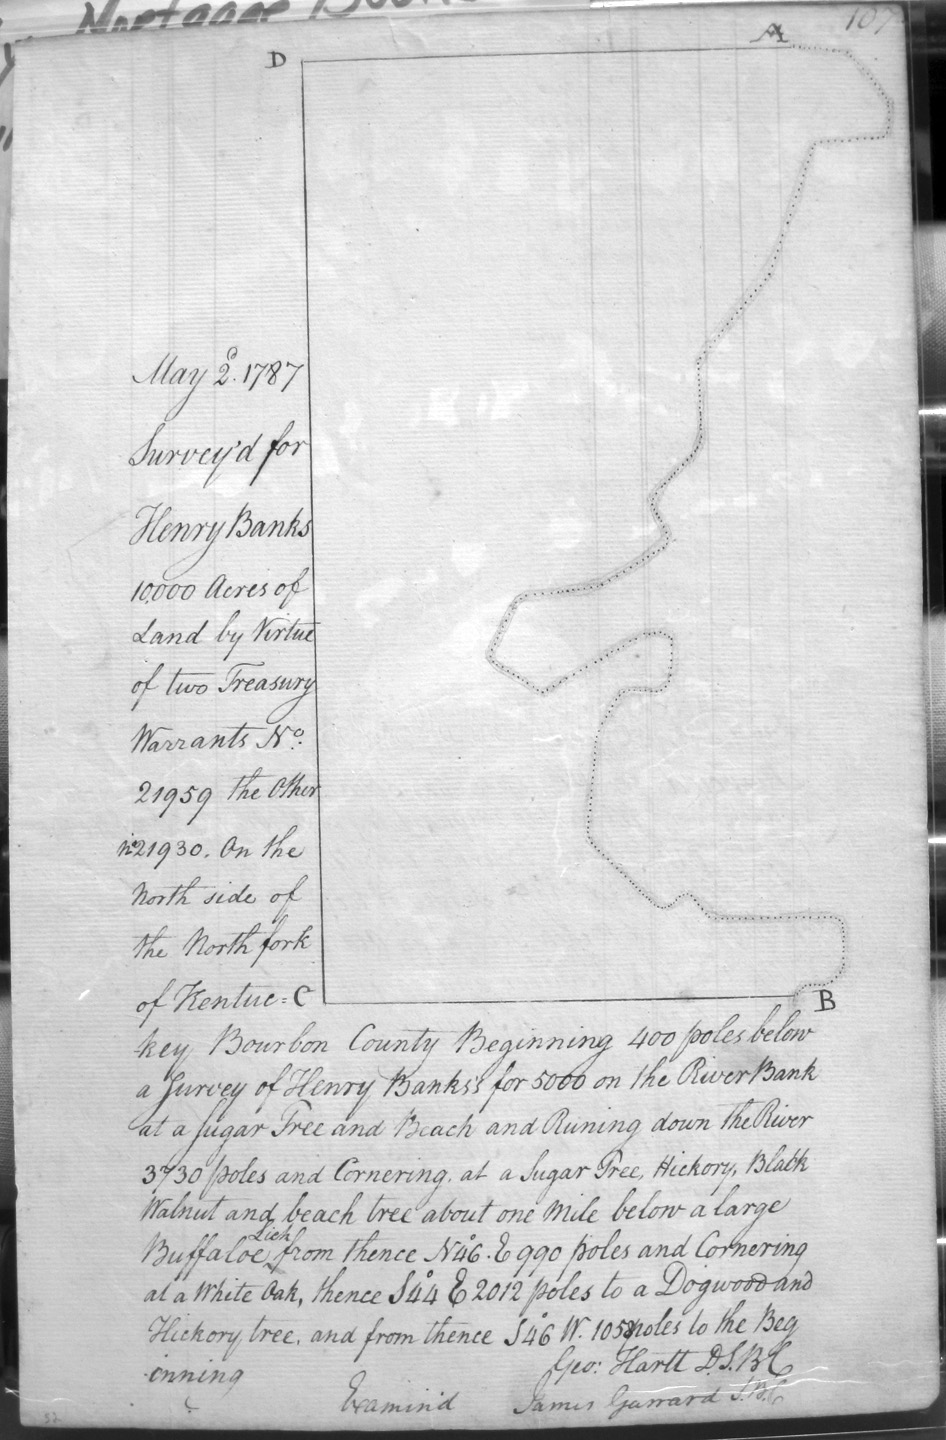 Mortgage Book
107
D A
May 2d. 1787
Survey'd for
Henry Banks
10,000 Acres of
Land by Virtue
of two Treasury
Warrants No.
21959 the Other
No 21930. On the
North side of
the North fork
of Kentuc= C B
key Bourbon County Beginning 400 poles below
a Survey of Henry Banks's for 5000 on the River Bank
at a Sugar Tree and Beach and Runing down the River
3730 poles and Cornering. at a Sugar Tree, Hickory, Black
Walnut and beach tree about one Mile below a large
Buffaloe Lick from thence N46°. E 990 poles and Cornering
at a White Oak, thence S44° E 2012 poles to a Dogwood and
Hickory tree, and from thence S46° W. 1058 poles to the Beg
inning Geo: Hartt D.S.B.C
Examin'd James Garrard S.B.C